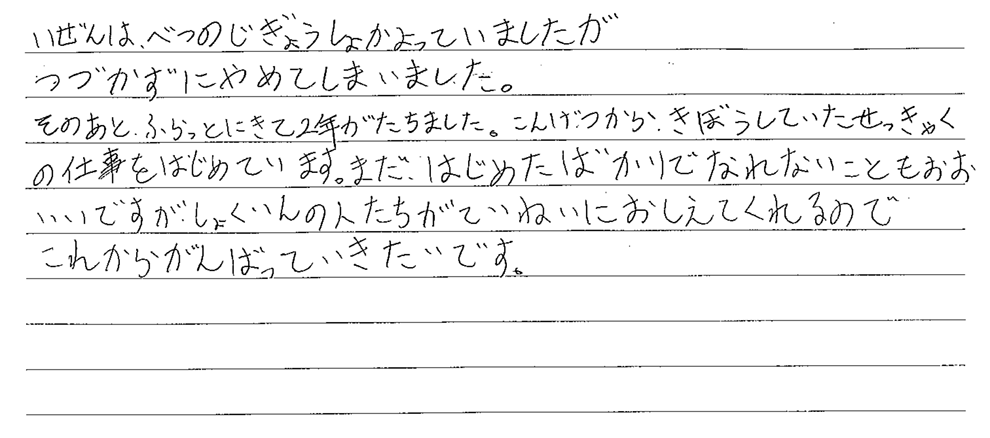 いぜんは、べつのじぎょうしょかよっていましたが
つづかずにやめてしまいました。
そのあと、ふらっとにきて2年がたちました。こんげつから、きぼうしていたせっきゃく
の仕事をはじめています。まだ、はじめたばかりでなれないこともおお
いいですが、しょくいんの人たちがていねいにおしえてくれるので
これからがんばっていきたいです。